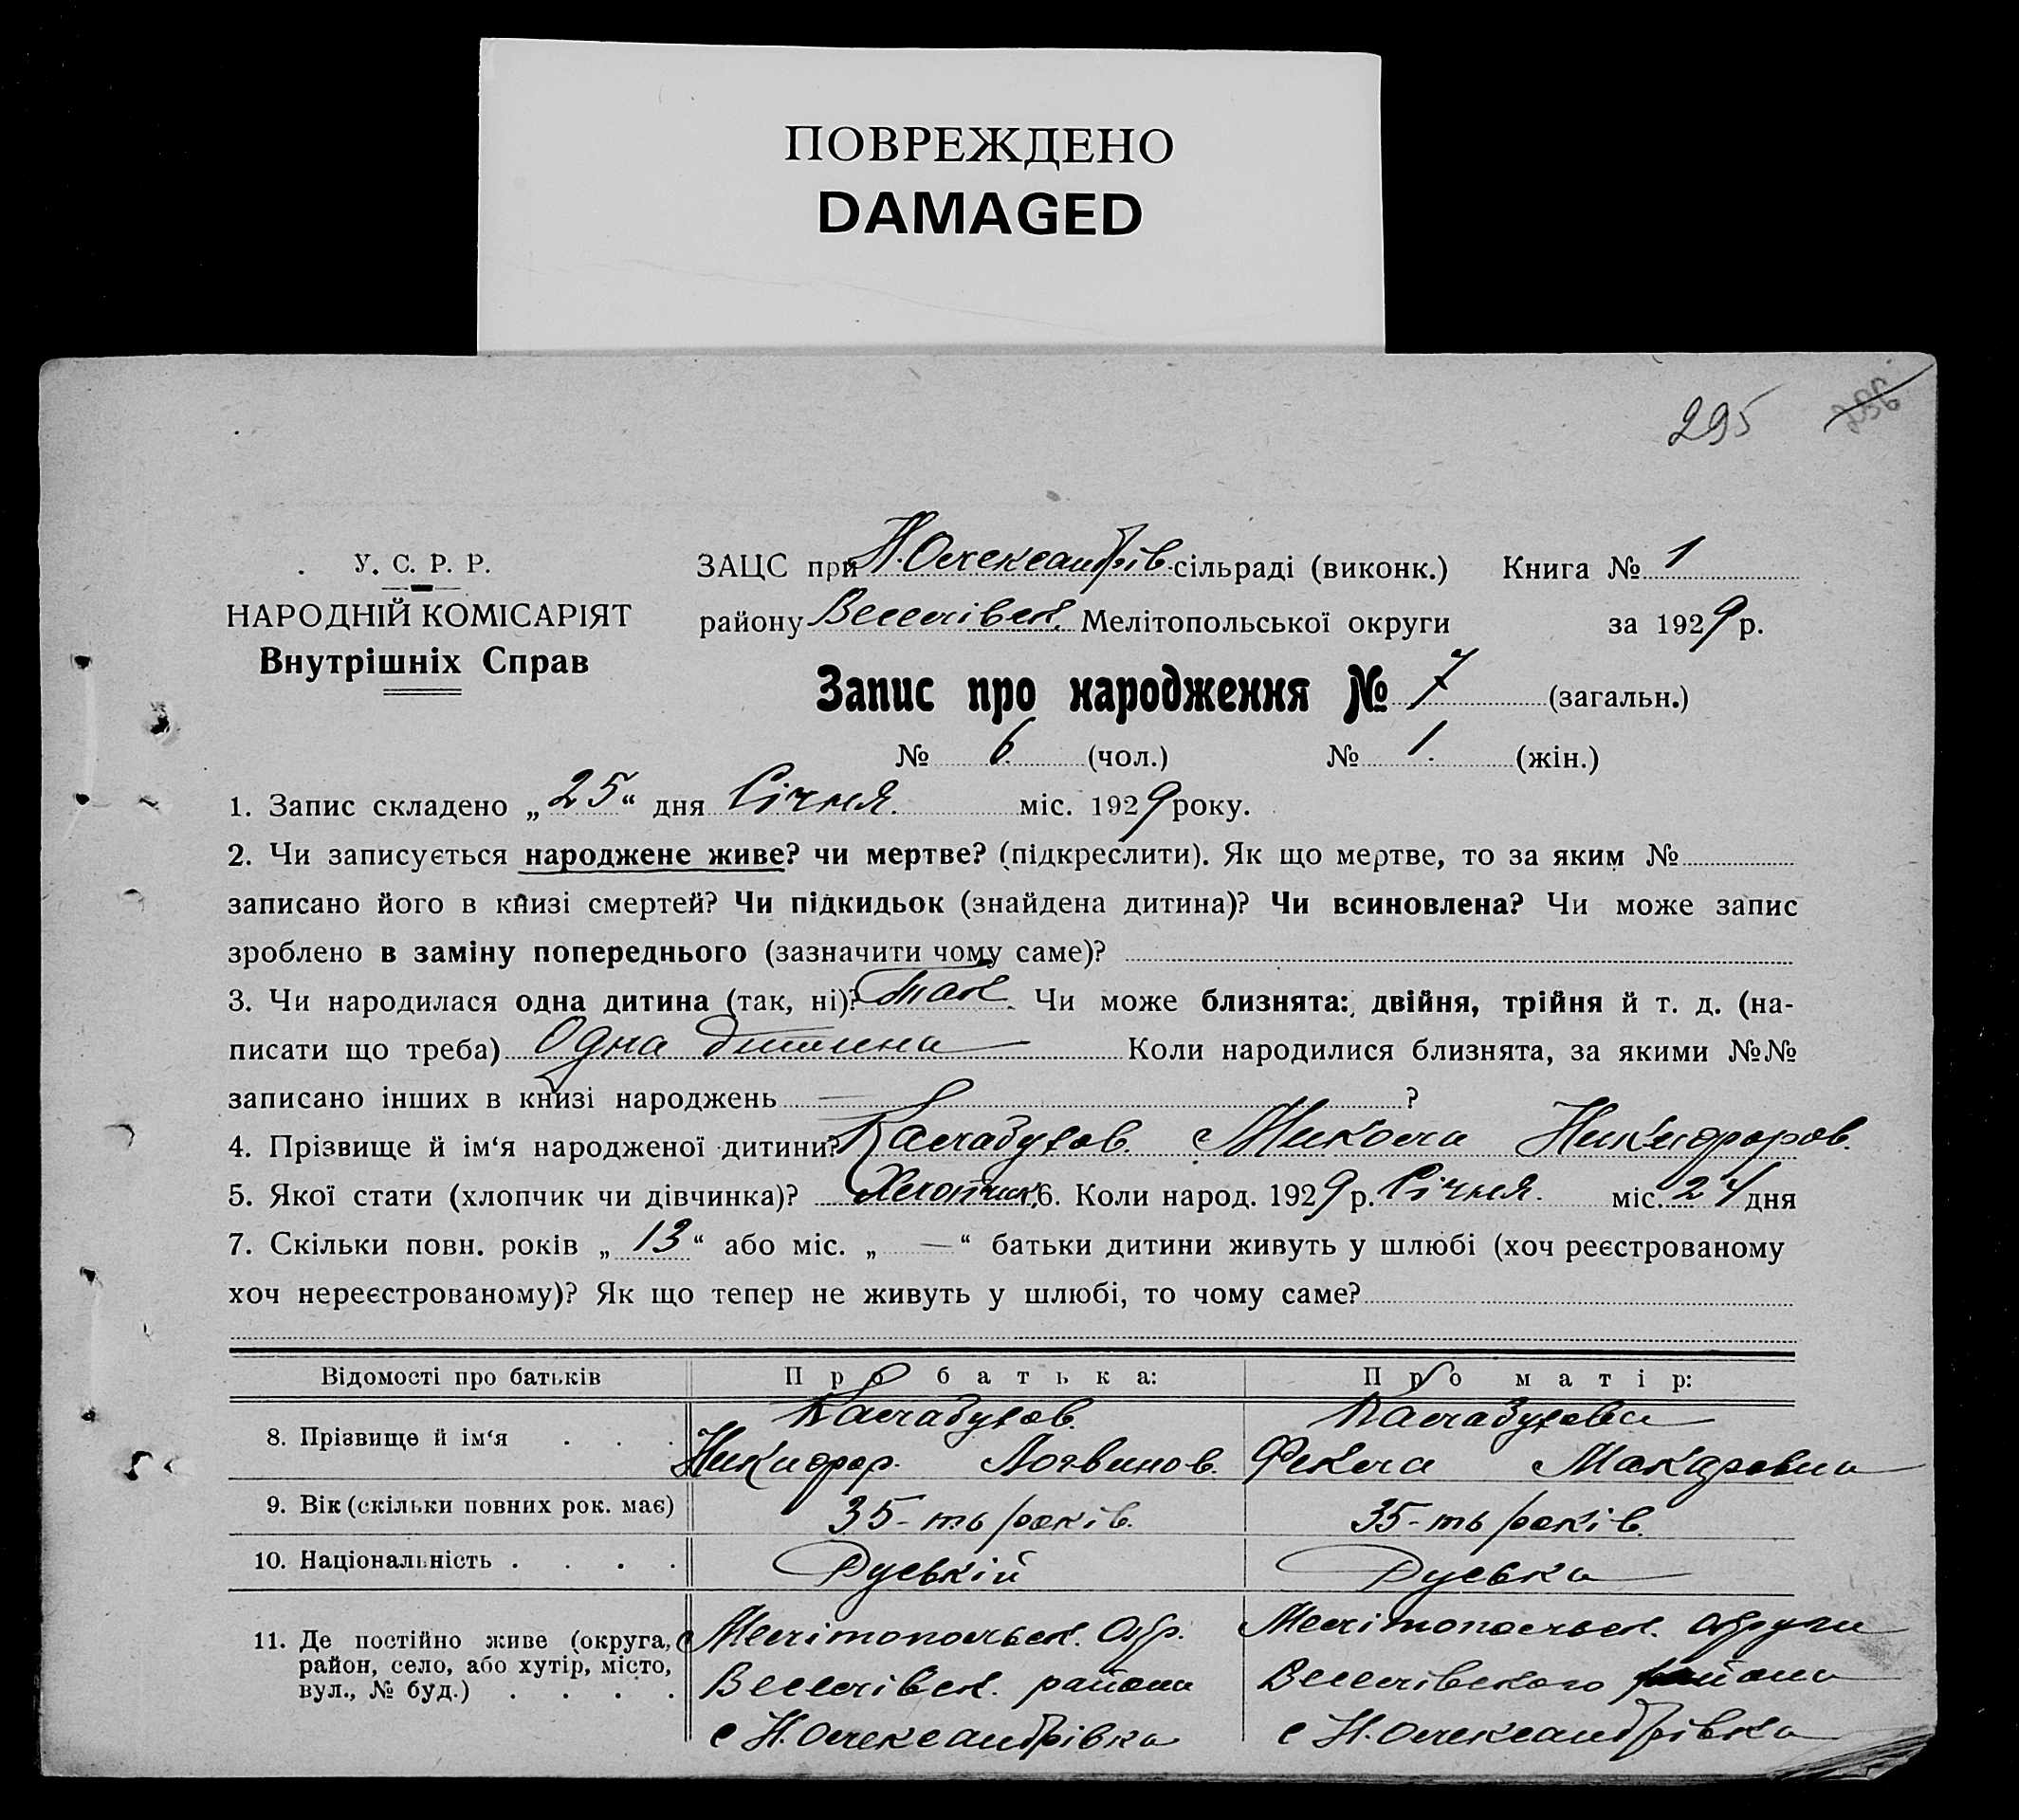 ПОВРЕЖДЕНО
DAMAGED
295
У. С. Р. Р.
НАРОДНІЙ КОМІСАРІЯТ
Внутрішніх Справ
ЗАЦС при Н. Олександрів. сільраді (виконк.) Книга № 1
району Веселівск. Мелітопольської округи за 1929 р.
Запис про народження № 7 (загальн.)
№ 6 (чол.) № 1. (жін.)
1. Запис складено „25“ дня Січня. міс. 1929 року.
2. Чи записується народжене живе? чи мертве? (підкреслити). Як що мертве, то за яким №
записано його в книзі смертей? Чи підкидьок (знайдена дитина)? Чи всиновлена? Чи може запис
зроблено в заміну попереднього (зазначити чому саме)?
3. Чи народилася одна дитина (так, ні)? так. Чи може близнята: двійня, трійня й т. д. (на-
писати що треба) Одна дитина Коли народилися близнята, за якими №№
записано інших в книзі народжень — ?
4. Прізвище й ім‘я народженої дитини? Калабухов. Микола Никифоров.
5. Якої стати (хлопчик чи дівчинка)? Хлопчик. 6. Коли народ. 1929 р. Січня. міс. 24 дня
7. Скільки повн. років „13“ або міс. „—“ батьки дитини живуть у шлюбі (хоч реєстрованому
хоч нереєстрованому)? Як що тепер не живуть у шлюбі, то чому саме?
Відомості про батьків Про батька: Про матір:
8. Прізвище й ім‘я . . . Калабухов. Калабухова
Никифор. Логвинов. Фекла Макаровна
9. Вік (скільки повних рок. має) 35-ть років. 35-ть років.
10. Національність . . . . Руський Руська
11. Де постійно живе (округа, район, село, або хутір, місто, вул., № буд.) . . . .
Мелітопольск. Окр. Мелітопольск. округи
Веселівск. района Веселівского района
с Н. Олександрівка с Н. Олександрівка